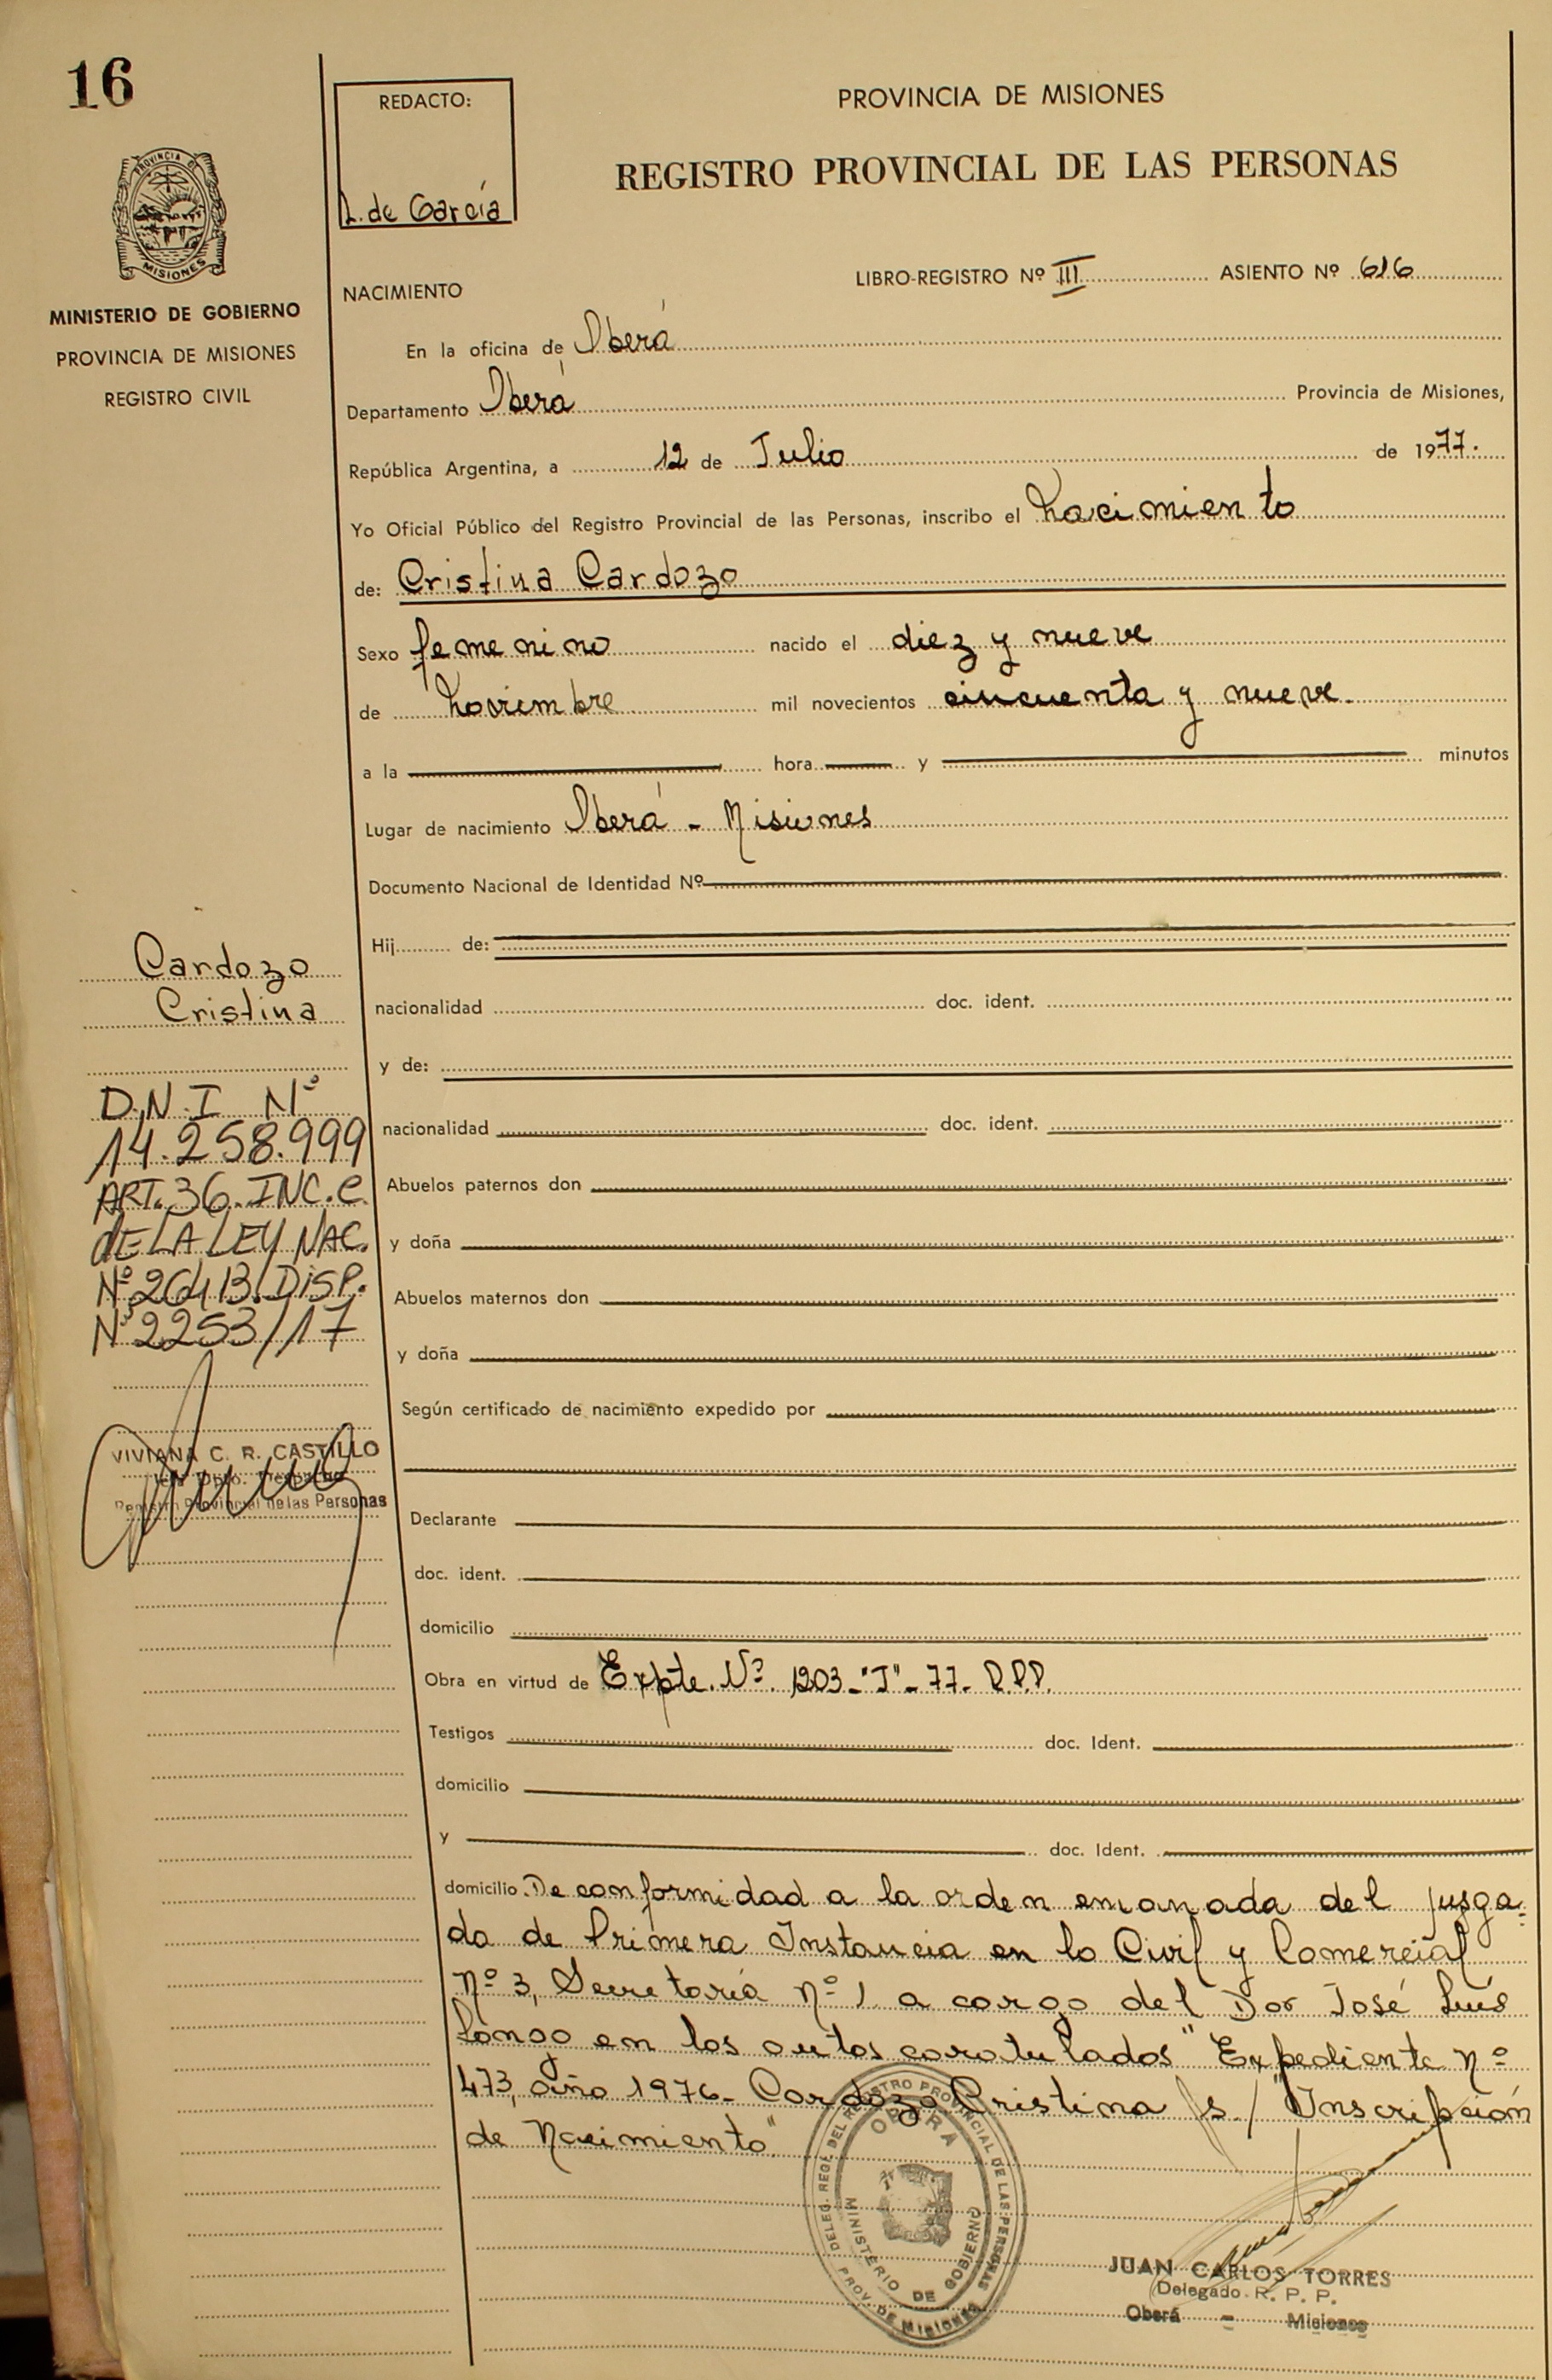 16
REDACTO:
L. de García
PROVINCIA DE MISIONES
REGISTRO PROVINCIAL DE LAS PERSONAS
PROVINCIA DE
MISIONES
MINISTERIO DE GOBIERNO
PROVINCIA DE MISIONES
REGISTRO CIVIL
NACIMIENTO
LIBRO-REGISTRO Nº III ASIENTO Nº 616
En la oficina de Oberá
Departamento Oberá Provincia de Misiones,
República Argentina, a 12 de Julio de 1977.
Yo Oficial Público del Registro Provincial de las Personas, inscribo el Nacimiento
de: Cristina Cardozo
Sexo femenino nacido el diez y nueve
de Noviembre mil novecientos cincuenta y nueve.
a la hora y minutos
Lugar de nacimiento Oberá - Misiones
Documento Nacional de Identidad Nº
Hij de:
nacionalidad doc. ident.
y de:
nacionalidad doc. ident.
Abuelos paternos don
y doña
Abuelos maternos don
y doña
Según certificado de nacimiento expedido por
Declarante
doc. ident.
domicilio
Obra en virtud de Expte. Nº. 1203-"J"-77- R.P.P.
Testigos doc. Ident.
domicilio
y doc. Ident.
domicilio. De conformidad a la orden emanada del jusga-
do de Primera Instancia en lo Civil y Comercial
Nº 3, Secretaría Nº 1 a cargo del Dor José Luis
Longo en los autos caratulados "Expediente Nº
473, año 1976- Cardozo Cristina s/ Inscripción
de Nacimiento"
Cardozo
Cristina
D.N.I Nº
14.258.999
ART. 36. INC. C.
DE LA LEY NAC.
Nº 26413. DISP.
Nº 2253/17
VIVIANA C. R. CASTILLO
Registro Provincial de las Personas
DELEG. REGL. DEL REGISTRO PROVINCIAL DE LAS PERSONAS
OBERA
MINISTERIO DE GOBIERNO
PROV. DE MISIONES
JUAN CARLOS TORRES
Delegado R. P. P.
Oberá - Misiones